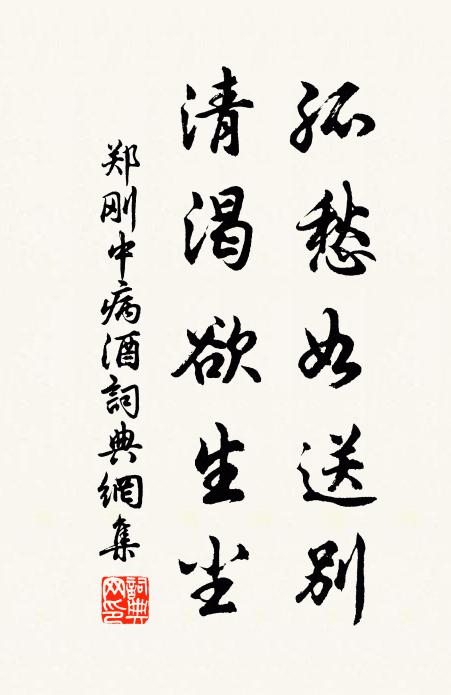 孤愁如送别
清渴欲生尘
郑刚中病酒詞典網集
詞典网印